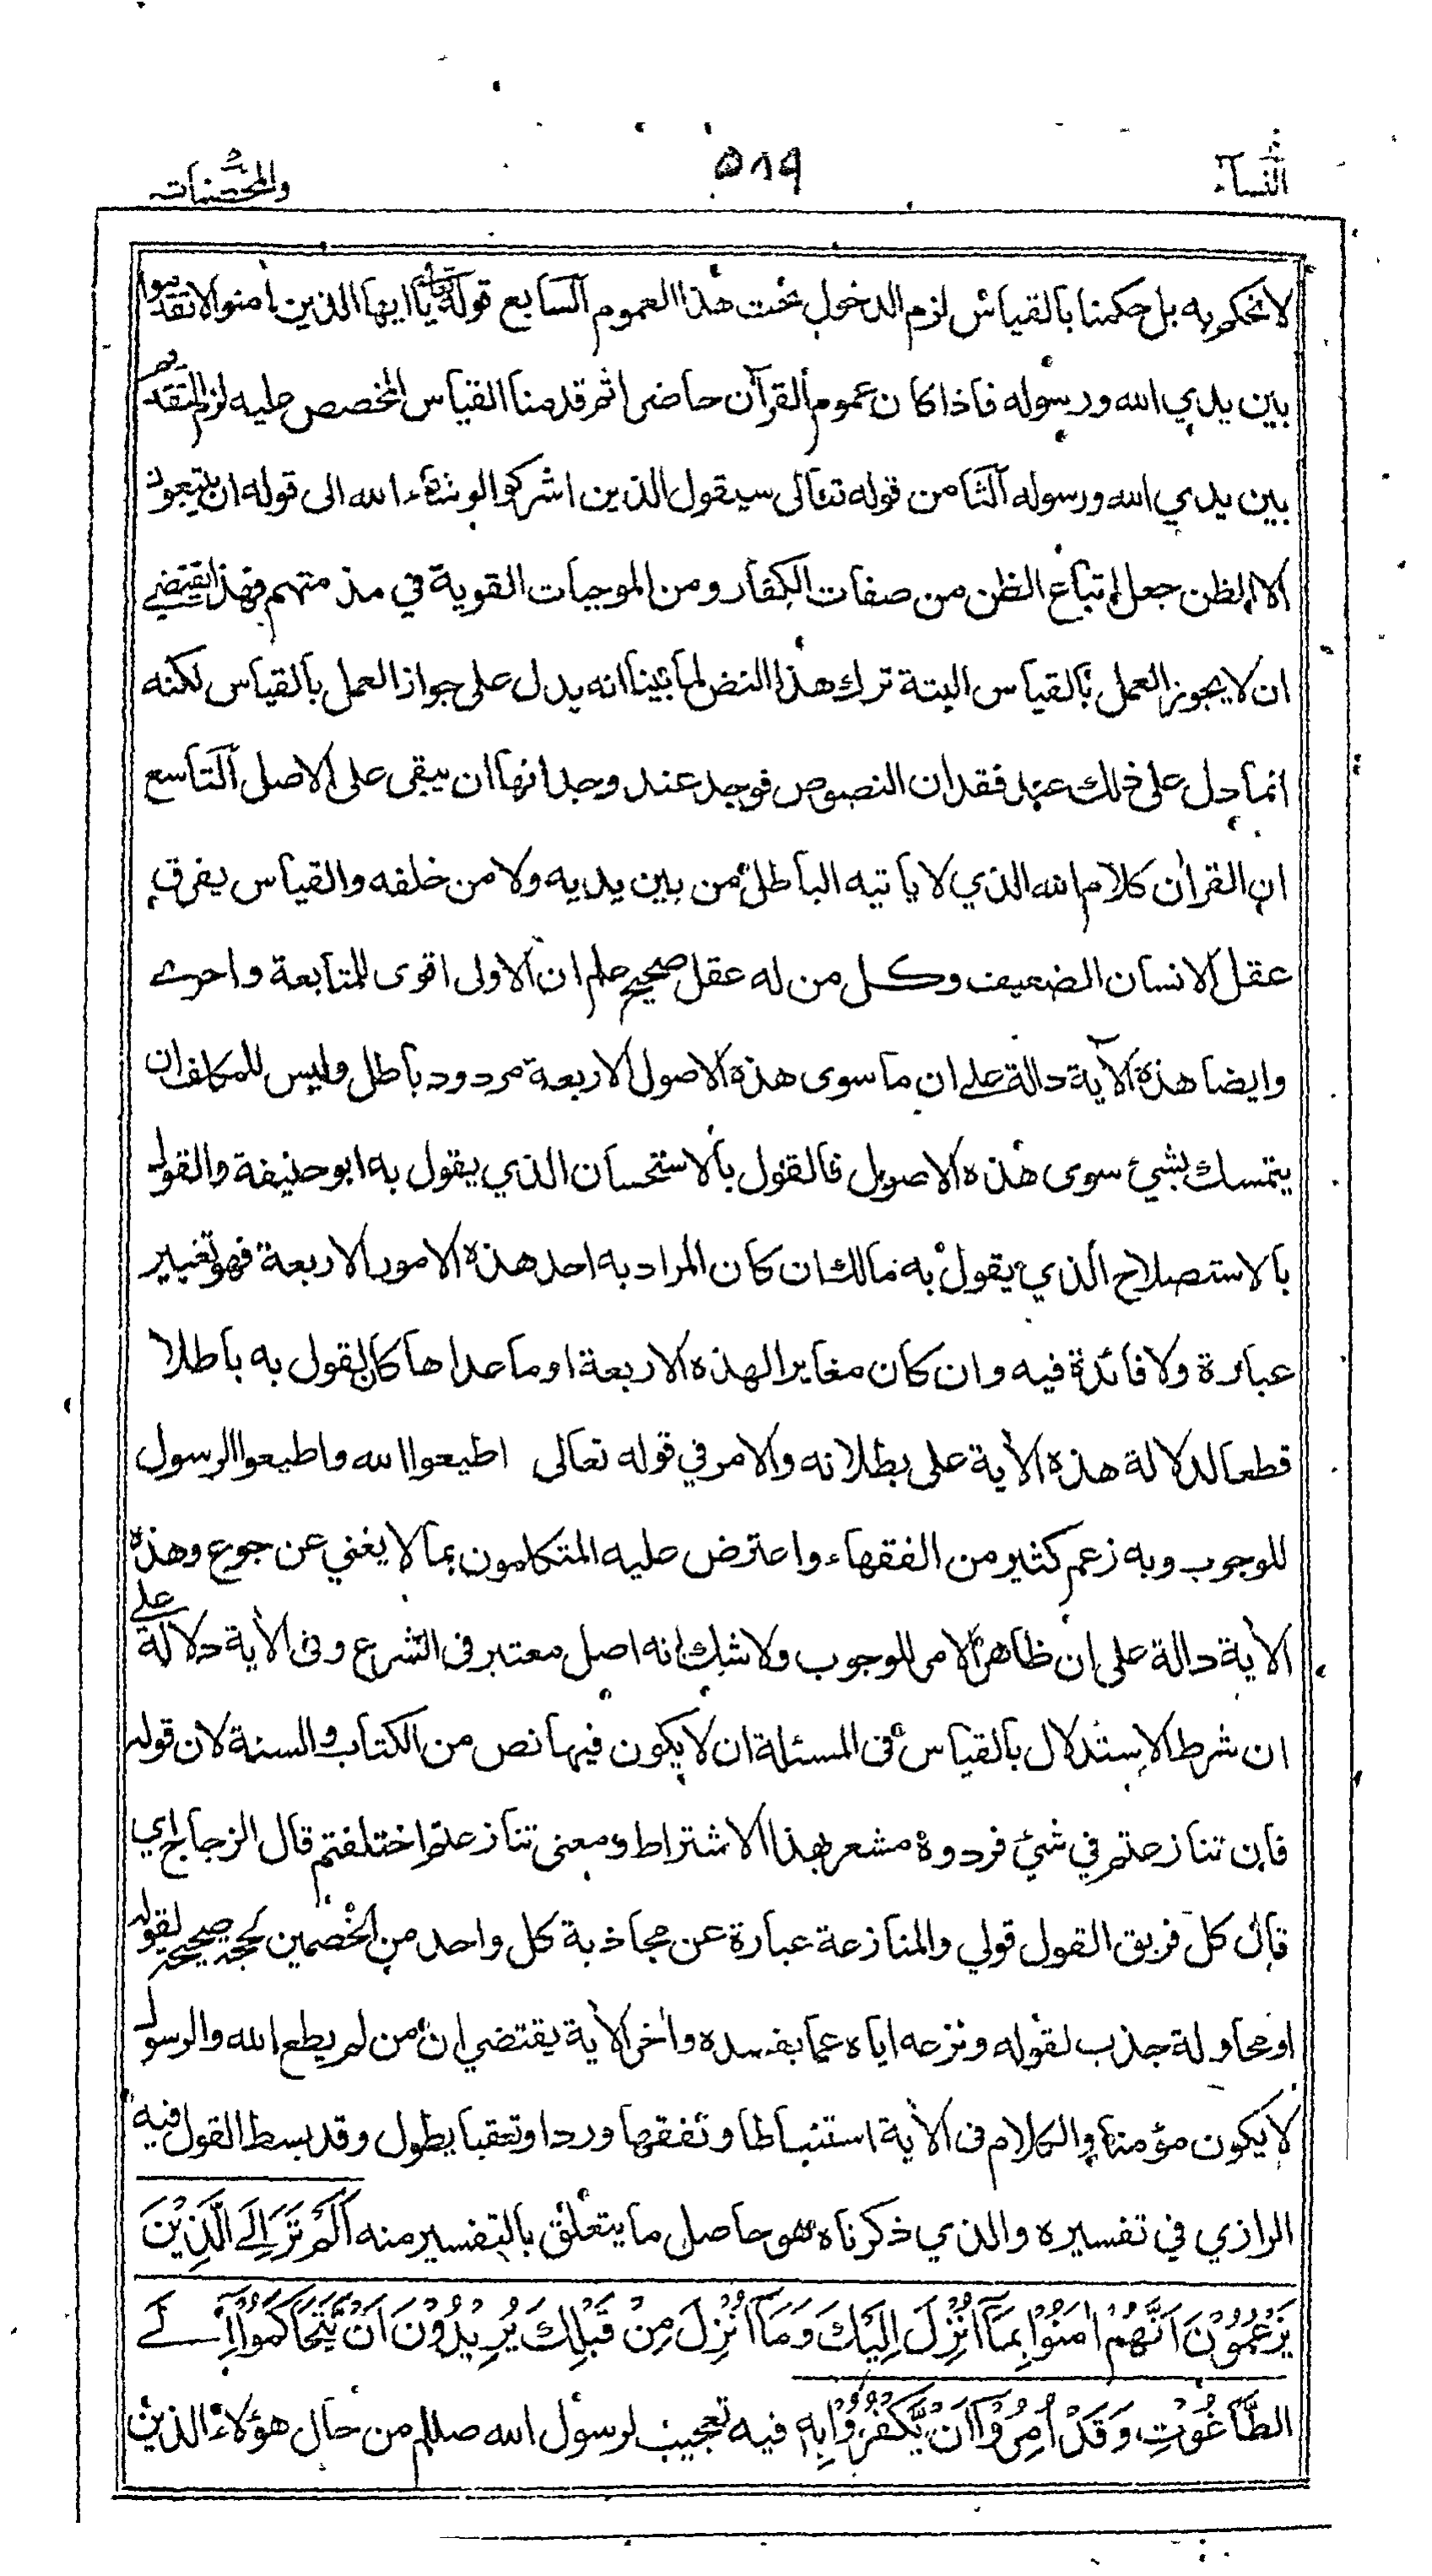 النسآء ٥٨٩ والمحصنات
لا نحكم به بل حكمنا بالقياس لزم الدخول تحت هذا العموم السابع قوله تعالى يا ايها الذين امنوا لا تقدموا
بين يدي الله ورسوله فاذا كان عموم القرآن حاضرا ثم قدمنا القياس المخصص عليه لزم التقدم
بين يدي الله ورسوله الثامن قوله تعالى سيقول الذين اشركوا لو شاء الله الى قوله ان يتبعون
الا الظن جعل اتباع الظن من صفات الكفار ومن الموجبات القوية في مذمتهم فهذا يقتضي
ان لا يجوز العمل بالقياس البتة ترك هذا النص لما بينا انه يدل على جواز العمل بالقياس لكنه
انما دل على ذلك عند فقدان النصوص فوجد عند وجدانها ان يبقى على الاصل التاسع
ان القرأن كلام الله الذي لا ياتيه الباطل من بين يديه ولا من خلفه والقياس يفرق
عقل الانسان الضعيف وكل من له عقل صحيح علم ان الاولى اقوى للمتابعة واحرى
وايضا هذه الأية دالة على ان ما سوى هذه الاصول الاربعة مردود باطل وليس للمكلف ان
يتمسك بشيء سوى هذه الاصول فالقول بالاستحسان الذي يقول به ابو حنيفة والقول
بالاستصلاح الذي يقول به مالك ان كان المراد به احد هذه الامور الاربعة فهو تغيير
عبارة ولا فائدة فيه وان كان مغايرا لهذه الاربعة او ما عداها كان القول به باطلا
قطعا لدلالة هذه الأية على بطلانه والامر في قوله تعالى اطيعوا الله واطيعوا الرسول
للوجوب وبه زعم كثير من الفقهاء واعترض عليه المتكلمون بما لا يغني عن جوع وهذه
الأية دالة على ان ظاهر الامر للوجوب ولا شك انه اصل معتبر فى الشرع وفى الأية دلالة على
ان شرط الاستدلال بالقياس فى المسئلة ان لا يكون فيها نص من الكتاب والسنة لان قوله
فان تنازعتم في شيء فردوه مشعر بهذا الاشتراط ومعنى تنازعتم اختلفتم قال الزجاج اي
قال كل فريق القول قولي والمنازعة عبارة عن مجاذبة كل واحد من الخصمين بحجة صحيحة لقوله
او محاولة جذب لقوله ونزعه اياه عما يفسده وأخر الأية يقتضي ان من لم يطع الله والرسول
لا يكون مؤمنا والكلام فى الأية استنباطا وتفقها وردا وتعقبا يطول وقد بسط القول فيه
الرازي في تفسيره والذي ذكرناه هو حاصل ما يتعلق بالتفسير منه اَلَمْ تَرَ اِلَى الَّذِيْنَ
يَزْعُمُوْنَ اَنَّهُمْ اٰمَنُوْا بِمَآ اُنْزِلَ اِلَيْكَ وَمَآ اُنْزِلَ مِنْ قَبْلِكَ يُرِيْدُوْنَ اَنْ يَّتَحَاكَمُوْٓا اِلَى
الطَّاغُوْتِ وَقَدْ اُمِرُوْٓا اَنْ يَّكْفُرُوْا بِهٖ فيه تعجيب لرسول الله صللم من حال هؤلاء الذين